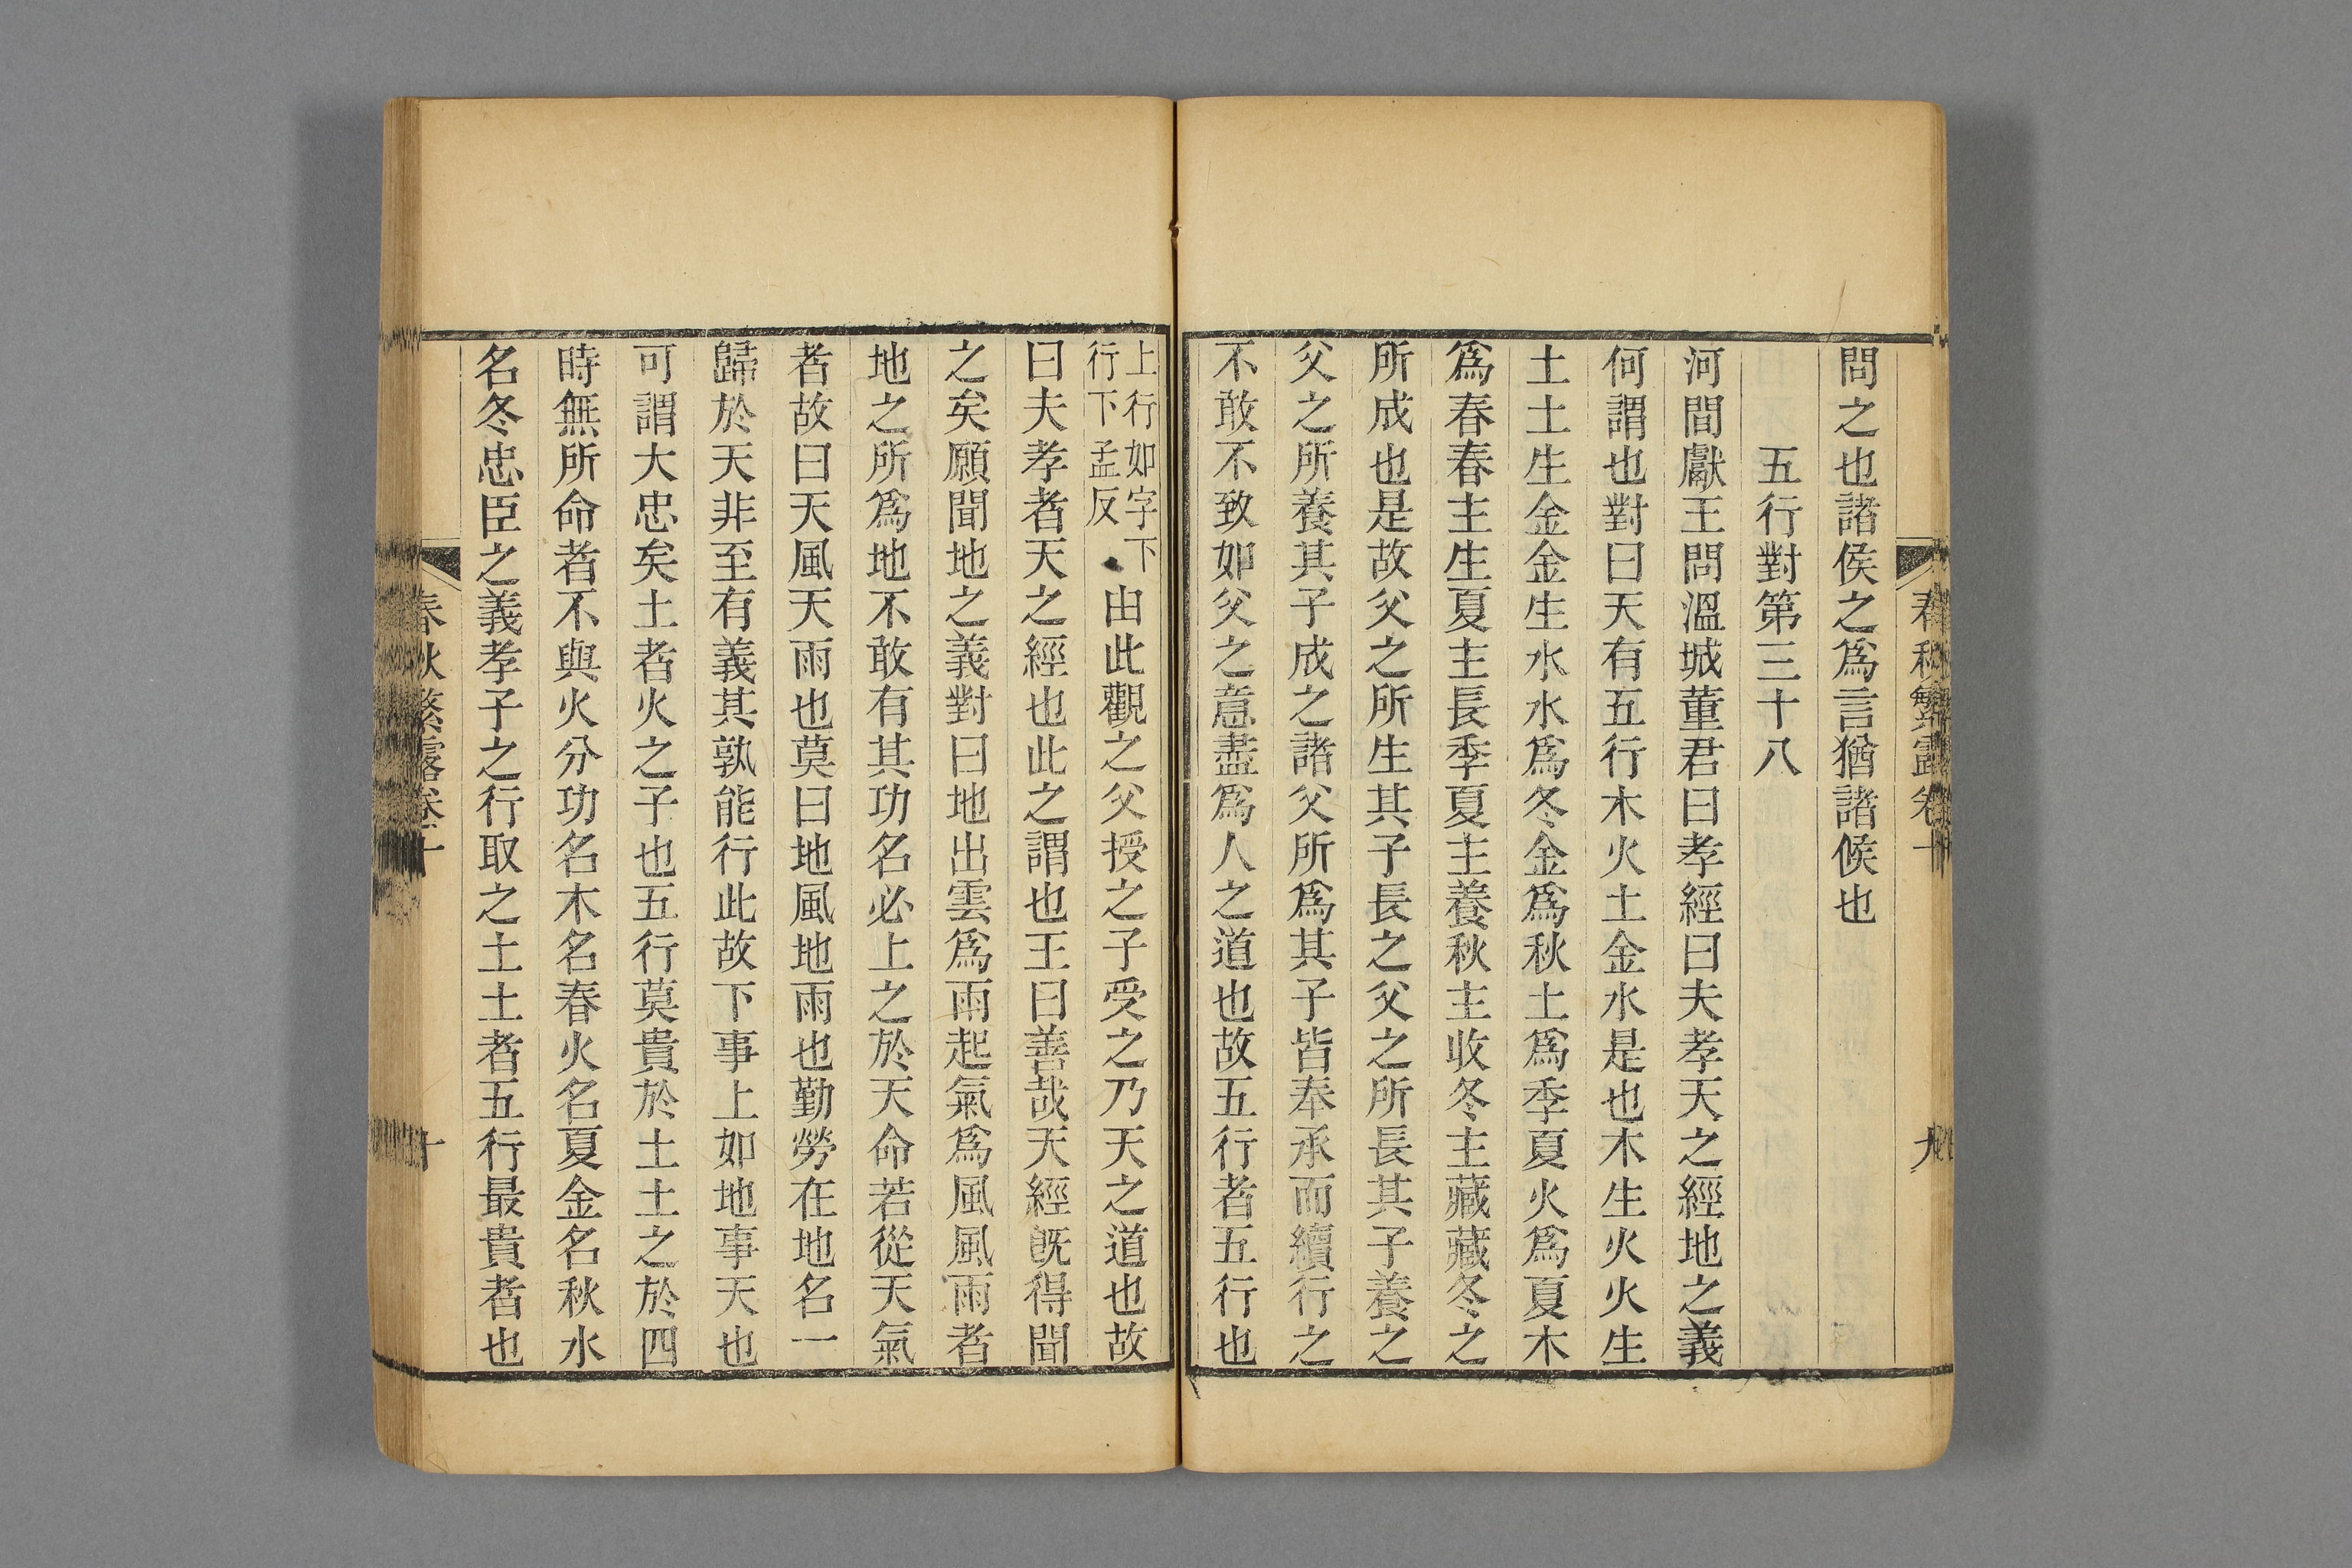 春秋繁露卷十 九
問之也諸侯之爲言猶諸候也
五行對第三十八
河間獻王問溫城董君曰孝經曰夫孝天之經地之義
何謂也對曰天有五行木火土金水是也木生火火生
土土生金金生水水爲冬金爲秋土爲季夏火爲夏木
爲春春主生夏主長季夏主養秋主收冬主藏藏冬之
所成也是故父之所生其子長之父之所長其子養之
父之所養其子成之諸父所爲其子皆奉承而續行之
不敢不致如父之意盡爲人之道也故五行者五行也
上行如字下
行下孟反
由此觀之父授之子受之乃天之道也故
曰夫孝者天之經也此之謂也王曰善哉天經旣得聞
之矣願聞地之義對曰地出雲爲雨起氣爲風風雨者
地之所爲地不敢有其功名必上之於天命若從天氣
者故曰天風天雨也莫曰地風地雨也勤勞在地名一
歸於天非至有義其孰能行此故下事上如地事天也
可謂大忠矣土者火之子也五行莫貴於土土之於四
時無所命者不與火分功名木名春火名夏金名秋水
名冬忠臣之義孝子之行取之土土者五行最貴者也
春秋繁露卷十 十